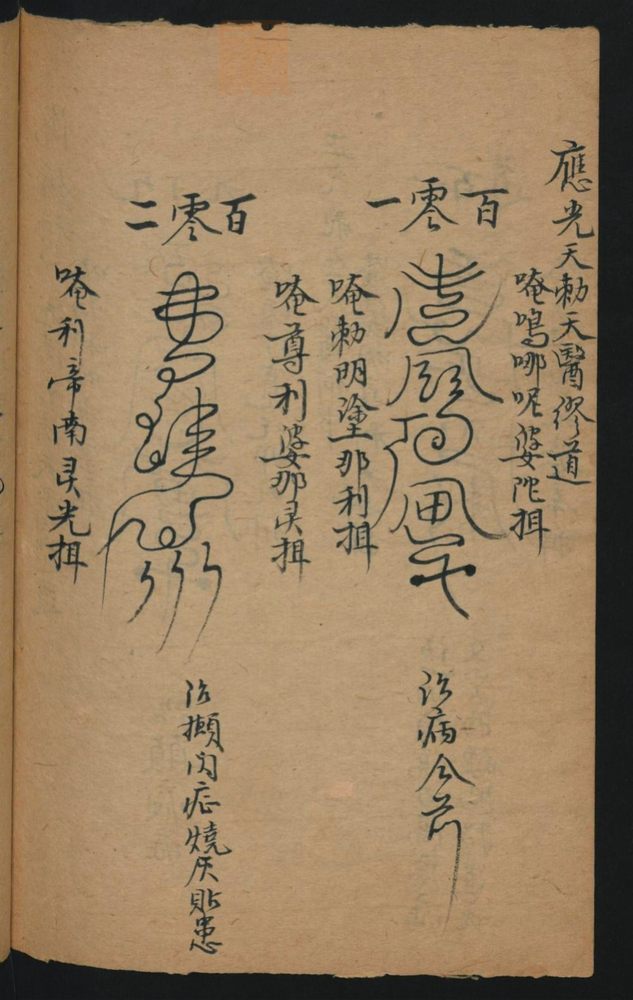 應光天勅天醫修道
唵嗚哪呢婆陀揖
百零一
治病
唵勅明塗那利揖
唵尊利婆那灵揖
百零二
治癲閃症燒灰貼患
唵利帝南灵光揖